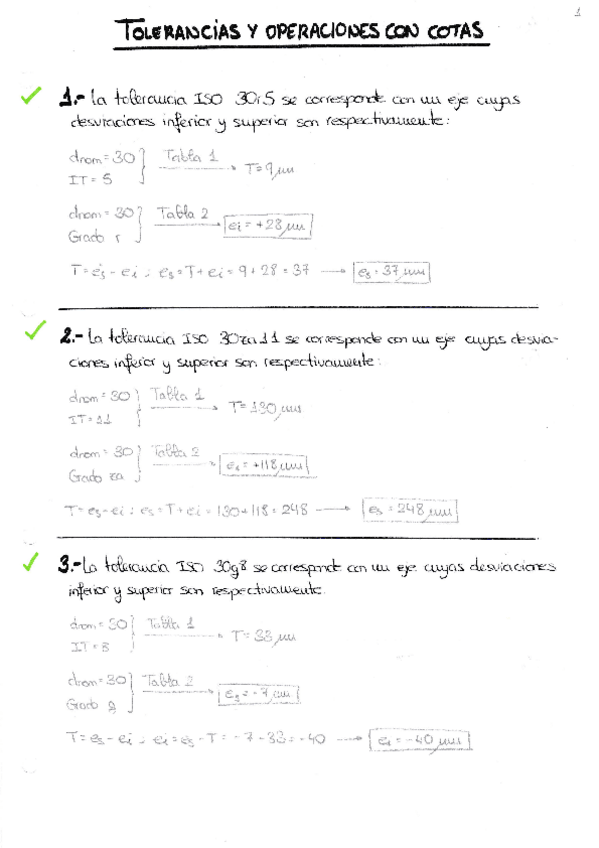 1
TOLERANCIAS Y OPERACIONES CON COTAS
1.- La tolerancia ISO 30r5 se corresponde con un eje cuyas
desviaciones inferior y superior son respectivamente:
dnom = 30 Tabla 1
IT = 5
T = 9 μm
dnom = 30 Tabla 2
Grado r
ei = +28 μm
T = es - ei ; es = T + ei = 9 + 28 = 37 → es = 37 μm
2.- La tolerancia ISO 30za11 se corresponde con un eje cuyas desvia-
ciones inferior y superior son respectivamente:
dnom = 30 Tabla 1
IT = 11
T = 130 μm
dnom = 30 Tabla 2
Grado za
ei = +118 μm
T = es - ei ; es = T + ei = 130 + 118 = 248 → es = 248 μm
3.- La tolerancia ISO 30g8 se corresponde con un eje cuyas desviaciones
inferior y superior son respectivamente.
dnom = 30 Tabla 1
IT = 8
T = 33 μm
dnom = 30 Tabla 2
Grado g
es = -7 μm
T = es - ei ; ei = es - T = -7 - 33 = -40 → ei = -40 μm